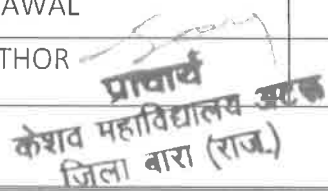 AWAL
THOR
प्राचार्य
केशव महाविद्यालय अटरू
जिला बारा (राज.)